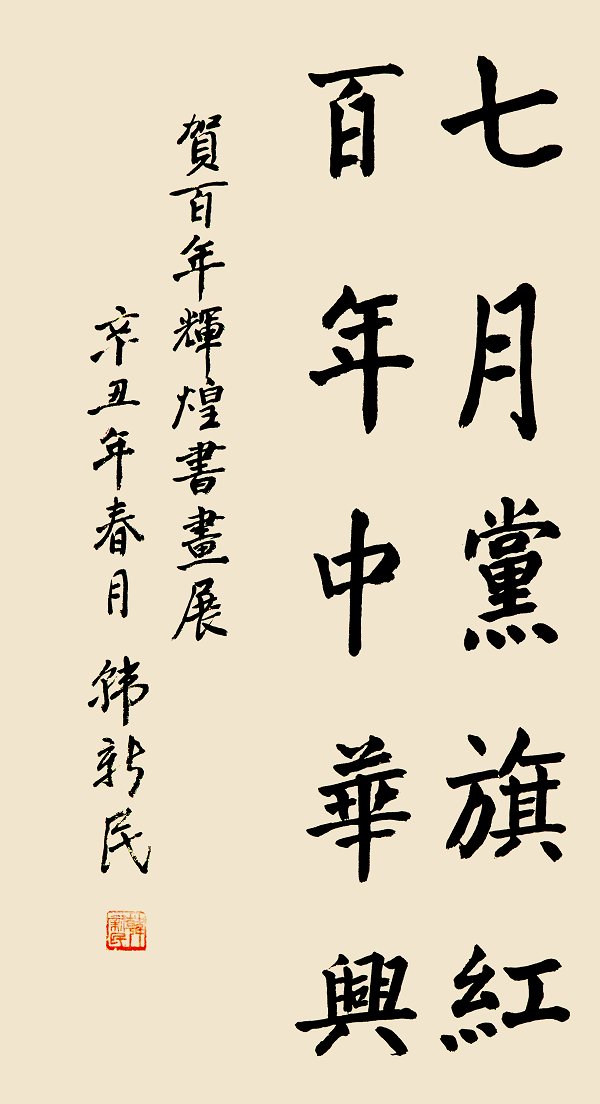 七月黨旗紅
百年中華興
賀百年輝煌書畫展
辛丑年春月 韩新民
韓新民